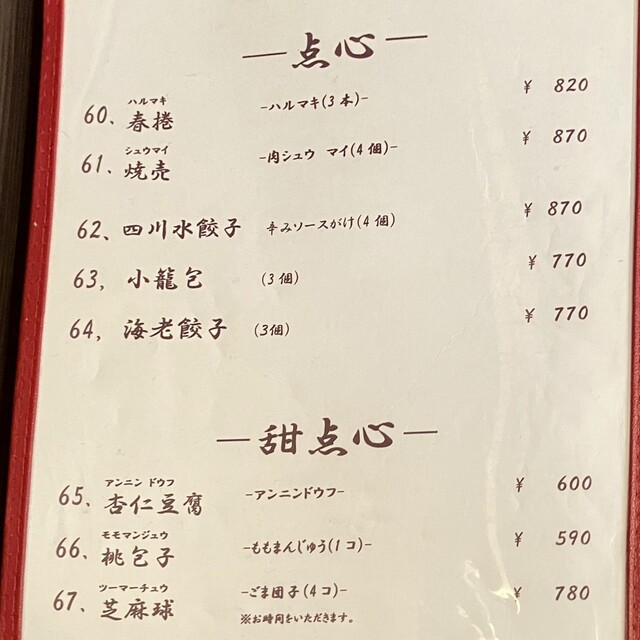 — 点心 —
ハルマキ
60、春捲 -ハルマキ(3本)- ¥ 820
シュウマイ
61、焼売 -肉シュウ マイ(4個)- ¥ 870
62、四川水餃子 辛みソースがけ(4個) ¥ 870
63, 小龍包 (3個) ¥ 770
64, 海老餃子 (3個) ¥ 770
— 甜点心 —
アンニン ドウフ
65、杏仁豆腐 -アンニンドウフ- ¥ 600
モモマンジュウ
66、桃包子 -ももまんじゅう(1コ)- ¥ 590
ツーマーチュウ
67、芝麻球 -ごま団子(4コ)- ¥ 780
※お時間をいただきます。